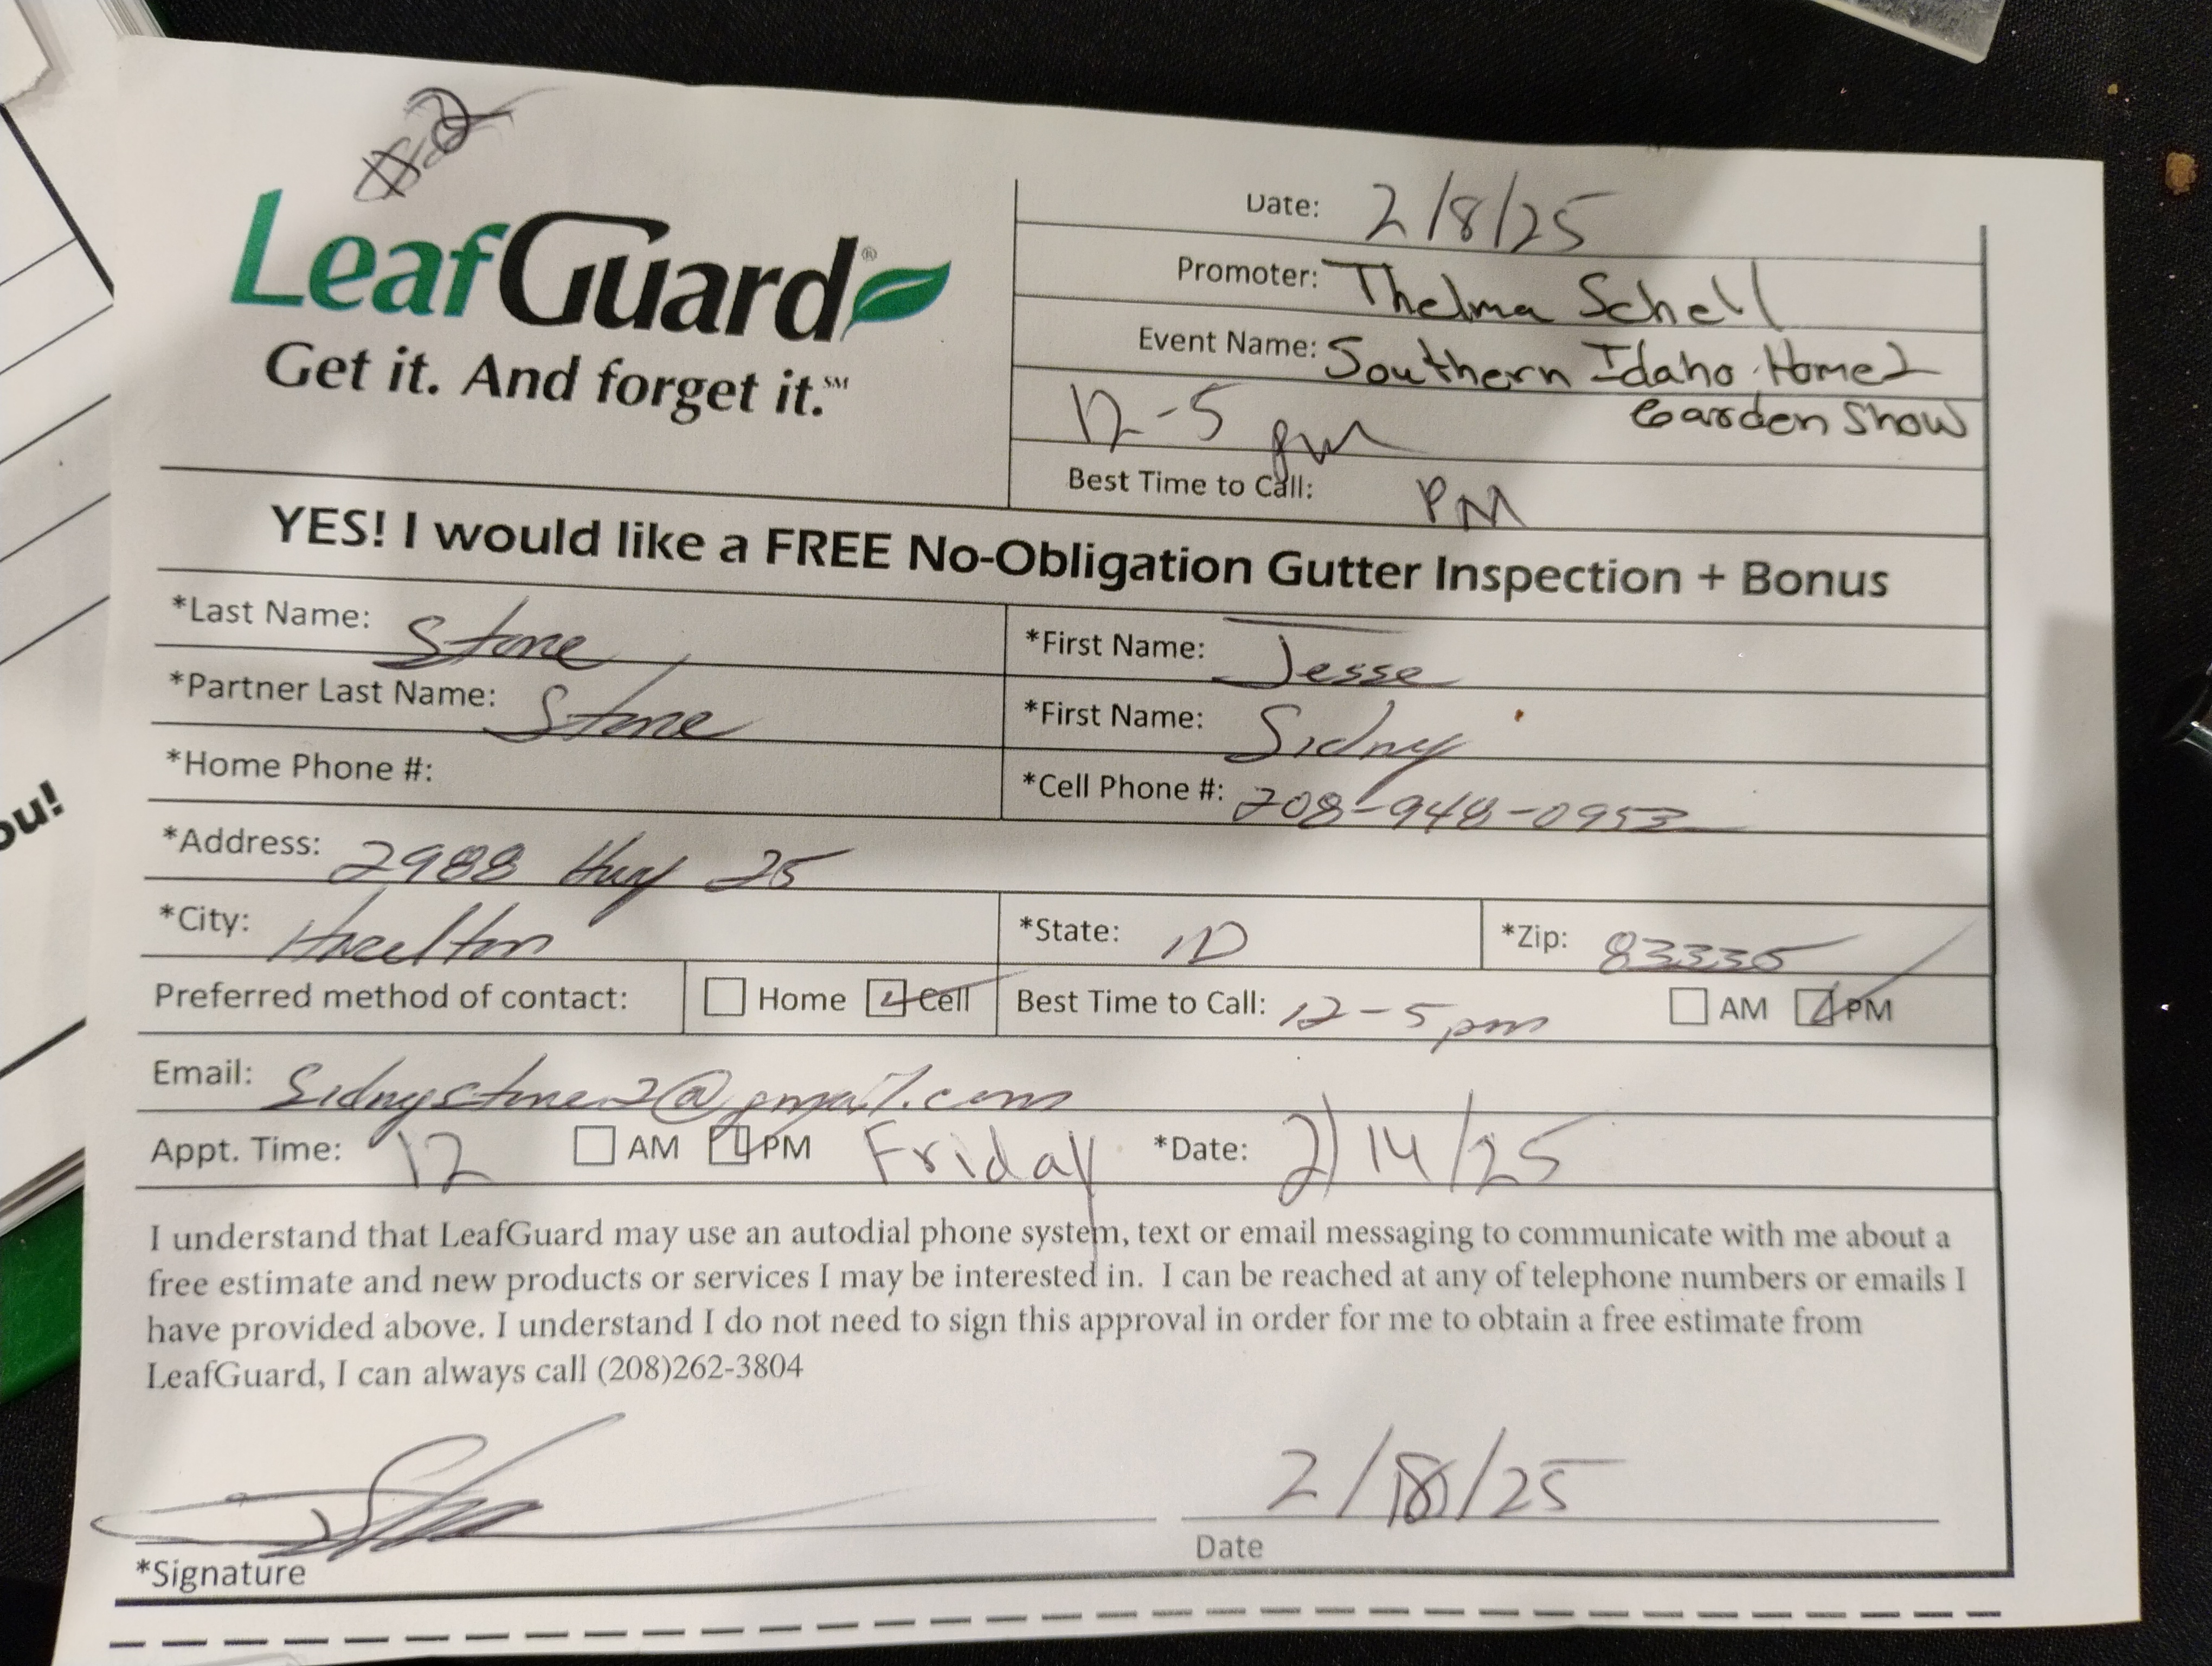 ou!
#2
LeafGuard®
Get it. And forget it.℠
Date: 2/8/25
Promoter: Thelma Schell
Event Name: Southern Idaho Home &
Garden Show
12-5 PM
Best Time to Call: PM
YES! I would like a FREE No-Obligation Gutter Inspection + Bonus
*Last Name: Stone *First Name: Jesse
*Partner Last Name: Stone *First Name: Sidny
*Home Phone #: *Cell Phone #:
*Address: 2988 Hwy 25
*City: *State: ID *Zip: 83335
Preferred method of contact: Home Cell Best Time to Call: 12-5pm AM PM
Email:
Appt. Time: 12 AM PM Friday *Date: 2/14/25
I understand that LeafGuard may use an autodial phone system, text or email messaging to communicate with me about a
free estimate and new products or services I may be interested in. I can be reached at any of telephone numbers or emails I
have provided above. I understand I do not need to sign this approval in order for me to obtain a free estimate from
LeafGuard, I can always call (208)262-3804
2/8/25
*Signature Date